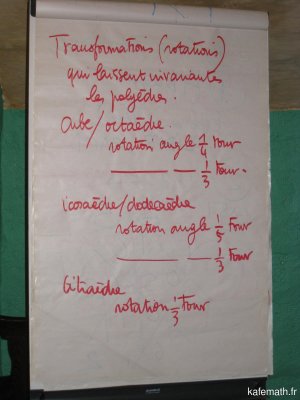 Transformations (rotations)
qui laissent invariantes
les polyèdres.
Cube/octaèdre.
rotation angle 1/4 tour
——— — 1/3 tour.
icosaèdre/dodécaèdre
rotation angle 1/5 tour
——— — 1/3 tour
tétraèdre
rotation 1/3 tour
kafemath.fr